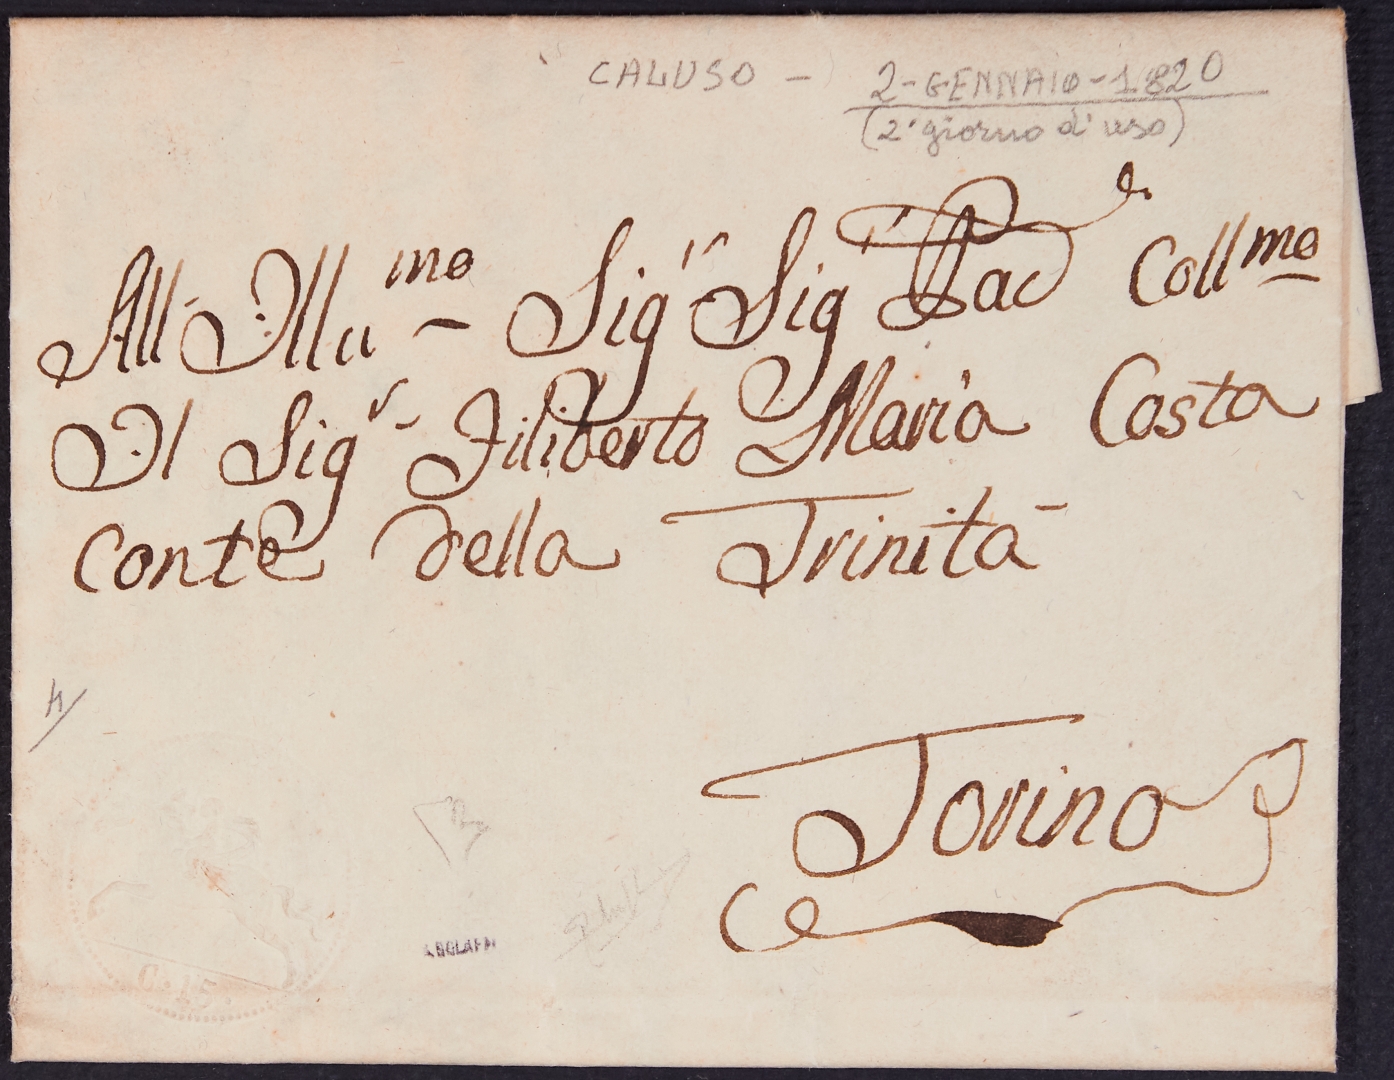 CALUSO - 2-GENNAIO-1820
(2° giorno d'uso)
All Illu.mo Sig.r Sig.r Pad Coll.mo
Il Sig.r Filiberto Maria Costa
Conte della Trinità
Torino
C. 15.